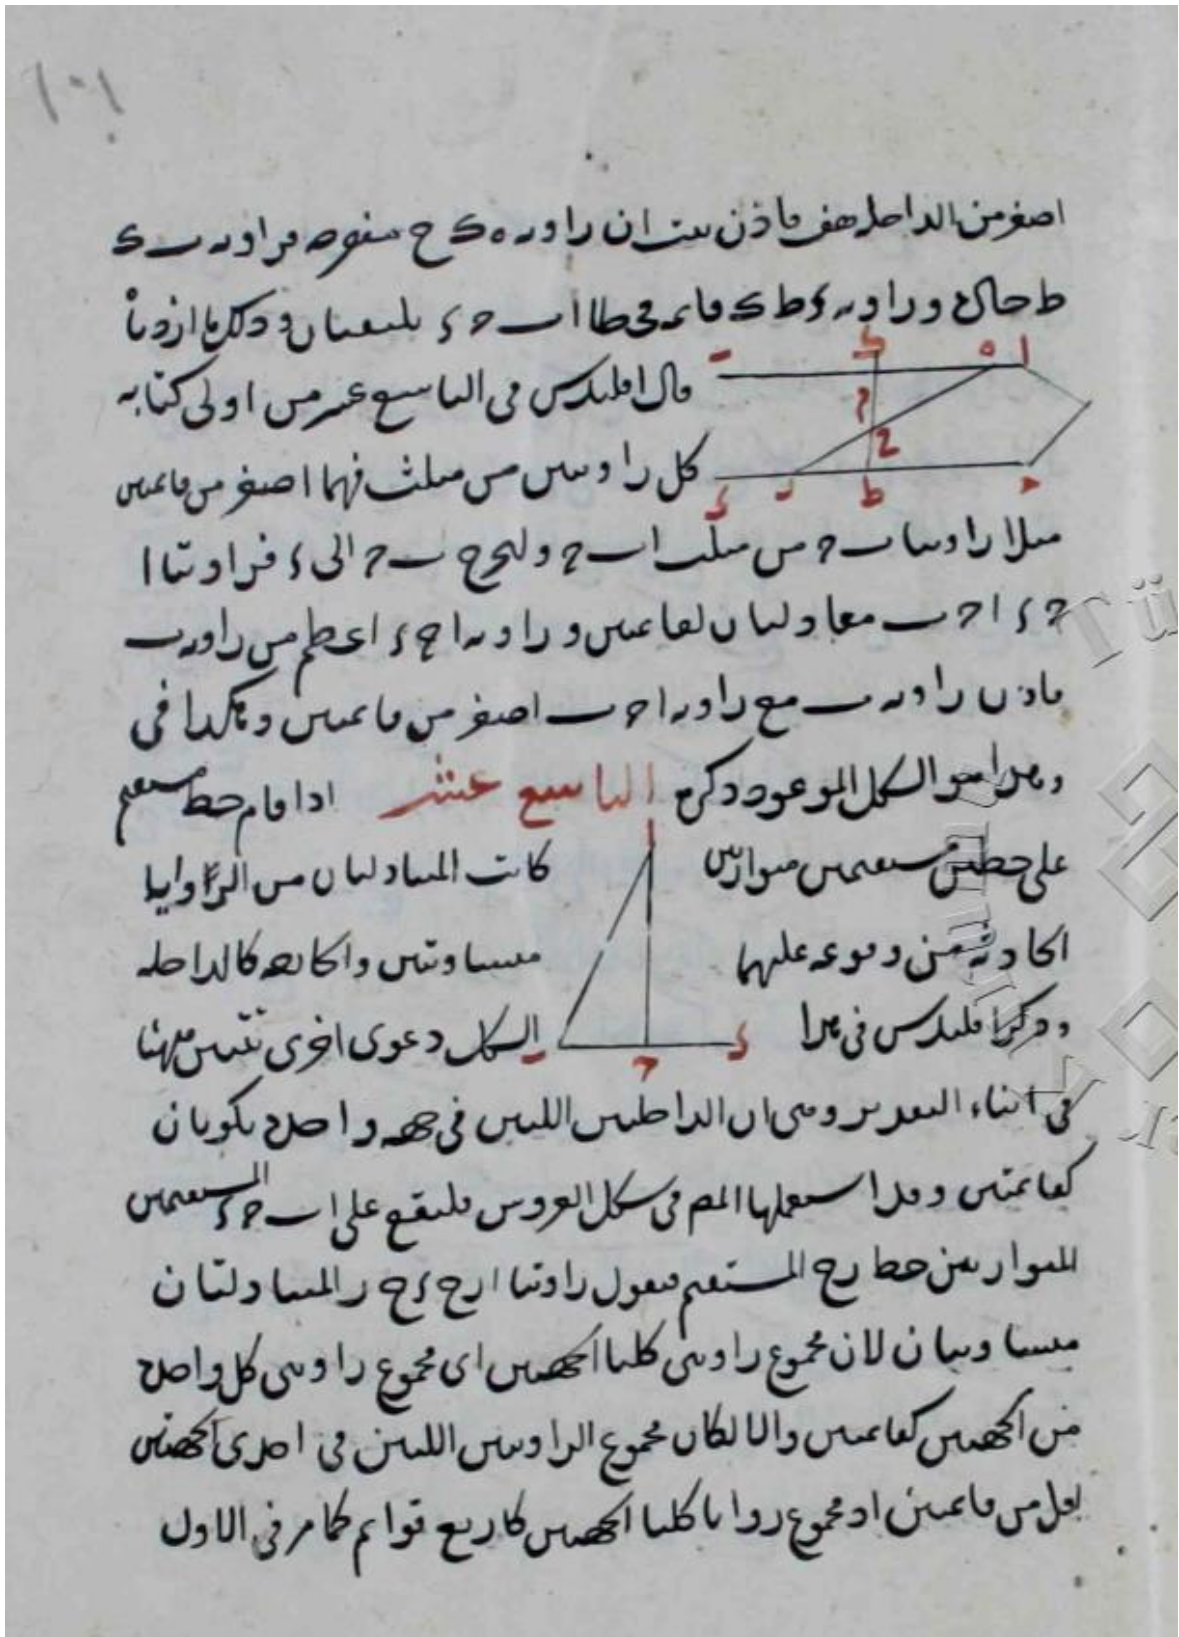 ١٠١
اصغر من الداخلة هف فاذن ثبت ان زاوية ه ك ح منفرجة فزاوية ب ك
ط حادة وزاوية ء ط ك قائمة فخطا ا ب ح ء يلتقيان وذلك ما اردنا
قال اقليدس في التاسع عشر من اولى كتابه
كل زاويتين من مثلث فهما اصغر من قائمتين
مثلا زاويتا ب ح من مثلث ا ب ح وليخرج ب ح الى ء فزاويتا ا
ح ء ا ح ب معادلتان لقائمتين وزاوية ا ح ء اعظم من زاوية ب
فاذن زاوية ب مع زاوية ا ح ب اصغر من قائمتين وهكذا في
وهذا هو الشكل الموعود ذكره التاسع عشر اذا قام خط مستقيم
على خطين مستقيمين متوازيين كانت المتبادلتان من الزوايا
الحادثة من وقوعه عليهما متساويتين والخارجة كالداخلة
وذكر اقليدس في هذا الشكل دعوى اخرى تتبين ههنا
في اثناء التقرير وهي ان الداخلتين اللتين في جهة واحدة تكونان
كقائمتين وقد استعملها المص في شكل العروس فليقع على ا ب ح ء المستقيمين
المتوازيين خط ر ح المستقيم فنقول زاويتا ا ر ح ء ح ر المتبادلتان
متساويتان لان مجموع زاويتي كلتا الجهتين اى مجموع زاويتي كل واحدة
من الجهتين كقائمتين والا لكان مجموع الزاويتين اللتين في احدى الجهتين
اقل من قائمتين اذ مجموع زوايا كلتا الجهتين كاربع قوائم كما مر في الاول
ا
ه
ك
ب
ح
ح
ط
ر
ء
ا
ب
ح
ء